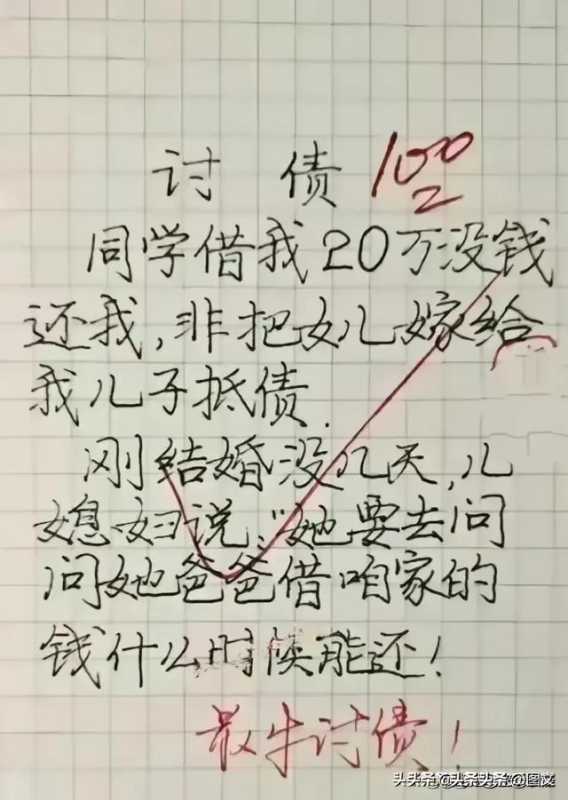 讨 债 100
同学借我20万没钱
还我,非把女儿嫁给
我儿子抵债.
刚结婚没几天,儿
媳妇说:"她要去问
问她爸爸借咱家的
钱什么时候能还!
最牛讨债!
头头条@头条头条@图文